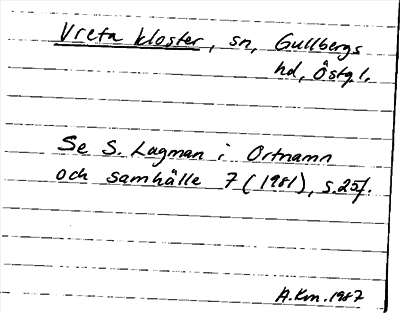 Vreta kloster, sn, Gullbergs
hd, Östgl.
Se S. Lagman i Ortnamn
och samhälle 7 (1981), s.25f.
A.Km.1987